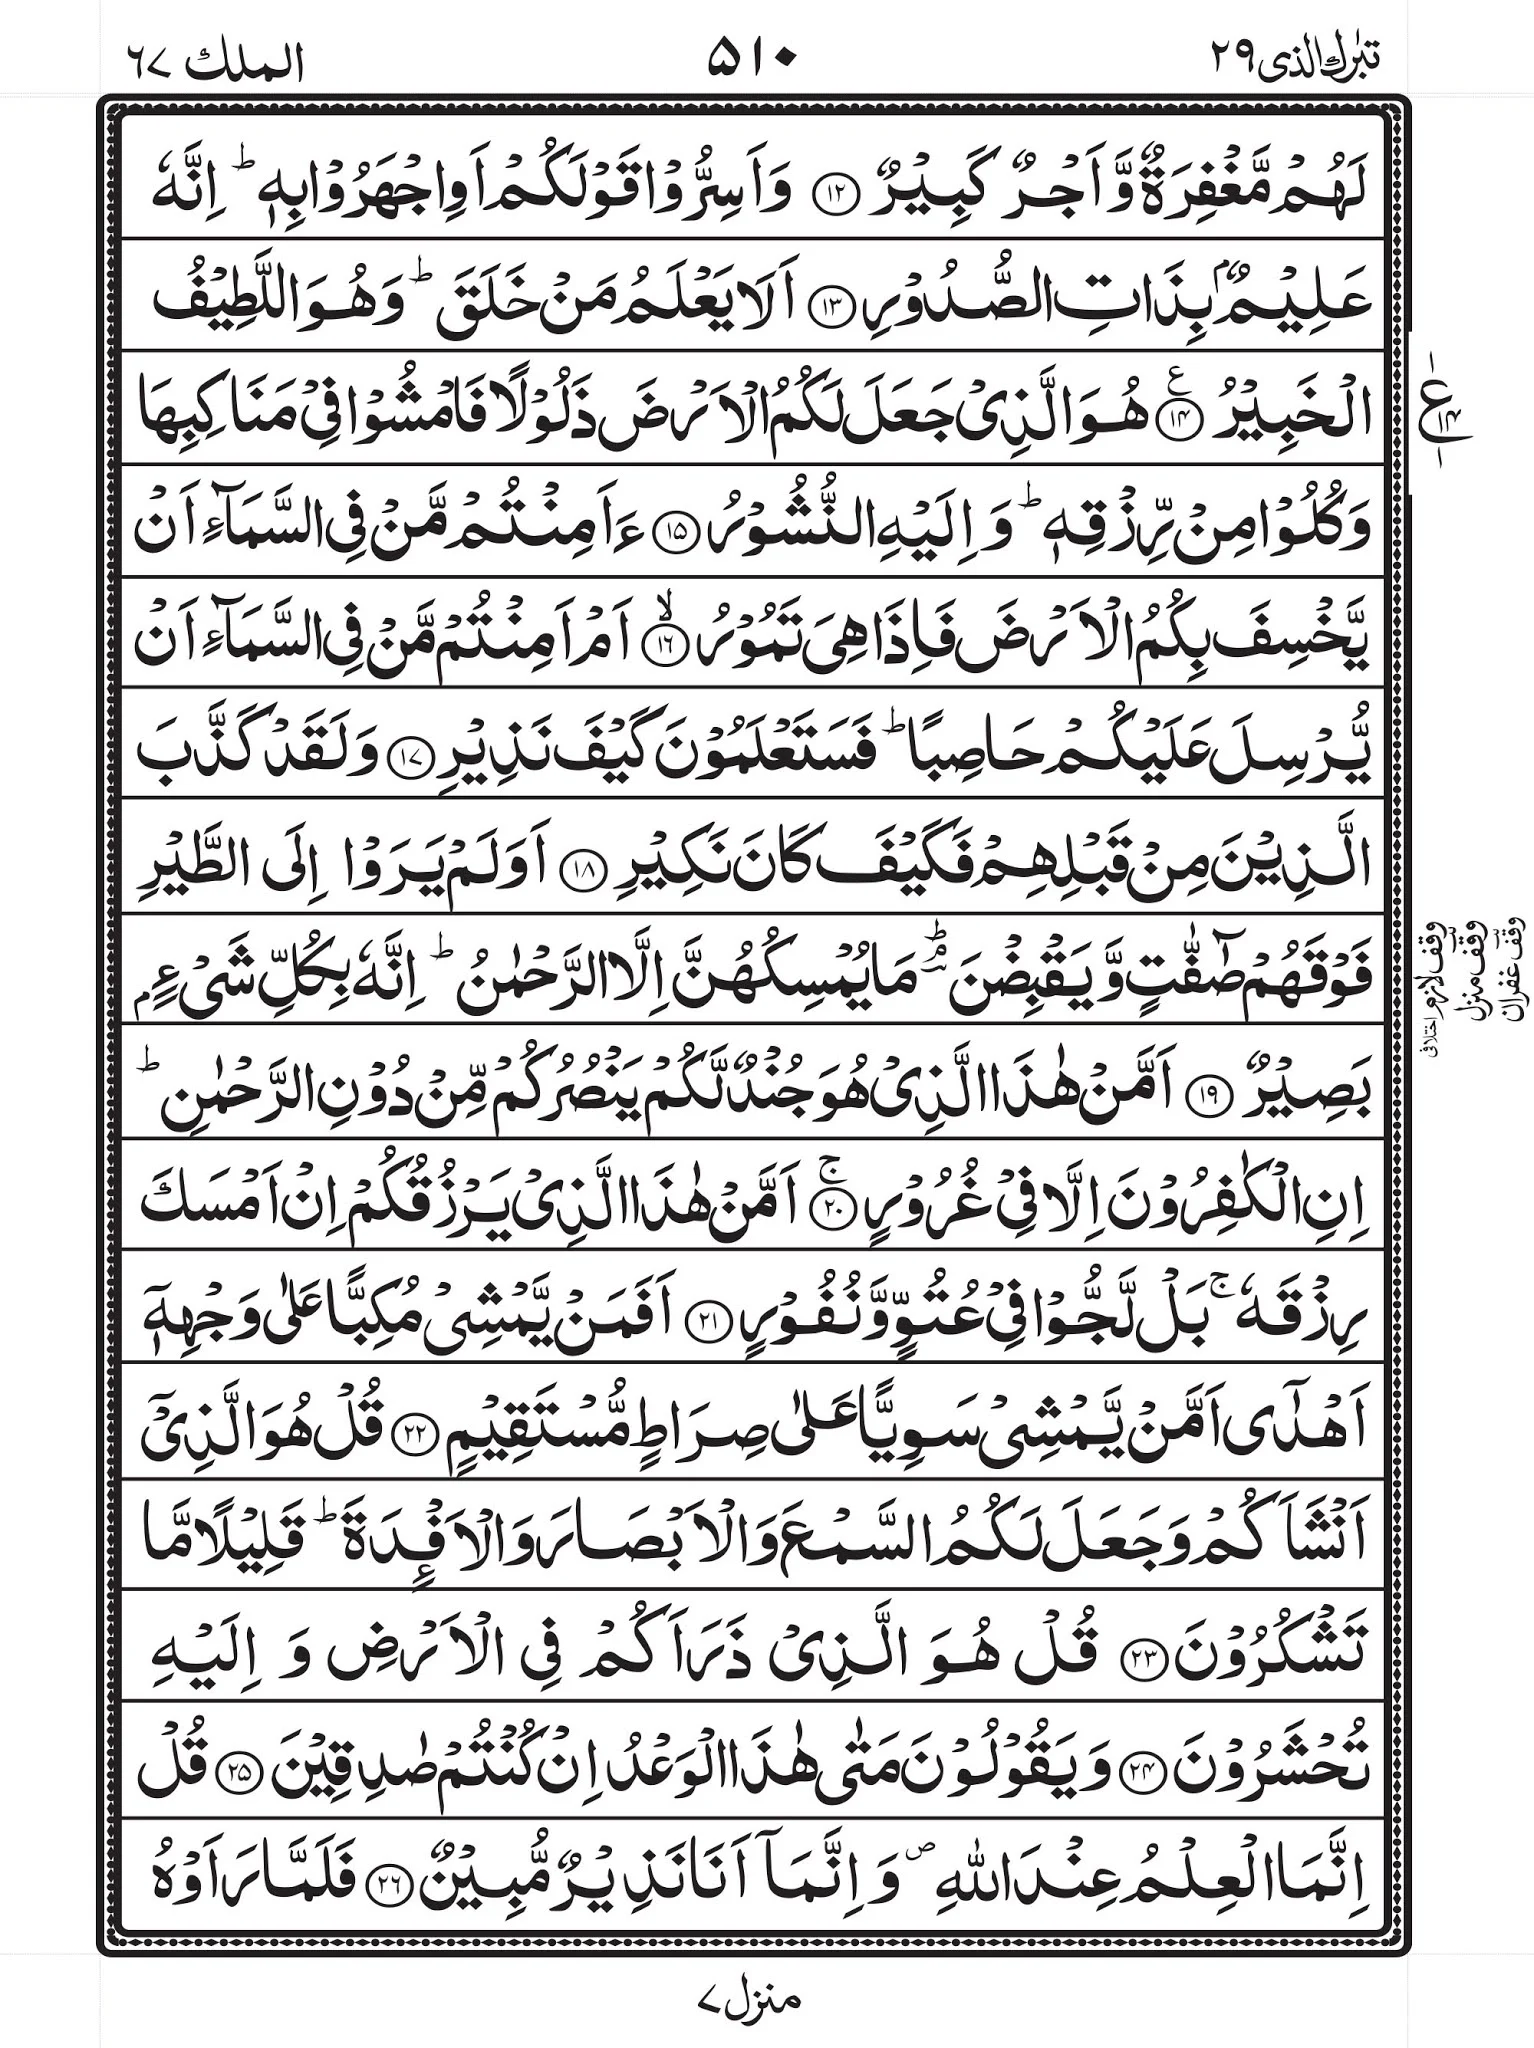 تبٰرك الذی ۲۹
۵۱۰
الملك ۶۷
لَهُمْ مَّغْفِرَةٌ وَّاَجْرٌ كَبِيْرٌ ۝۱۲ وَاَسِرُّوْا قَوْلَكُمْ اَوِ اجْهَرُوْا بِهٖ ؕ اِنَّهٗ
عَلِيْمٌۢ بِذَاتِ الصُّدُوْرِ ۝۱۳ اَلَا يَعْلَمُ مَنْ خَلَقَ ؕ وَهُوَ اللَّطِيْفُ
الْخَبِيْرُ ۝۱۴ ع هُوَ الَّذِیْ جَعَلَ لَكُمُ الْاَرْضَ ذَلُوْلًا فَامْشُوْا فِیْ مَنَاكِبِهَا
وَكُلُوْا مِنْ رِّزْقِهٖ ؕ وَاِلَيْهِ النُّشُوْرُ ۝۱۵ ءَاَمِنْتُمْ مَّنْ فِی السَّمَآءِ اَنْ
يَّخْسِفَ بِكُمُ الْاَرْضَ فَاِذَا هِیَ تَمُوْرُ ۝۱۶ۙ اَمْ اَمِنْتُمْ مَّنْ فِی السَّمَآءِ اَنْ
يُّرْسِلَ عَلَيْكُمْ حَاصِبًا ؕ فَسَتَعْلَمُوْنَ كَيْفَ نَذِيْرِ ۝۱۷ وَلَقَدْ كَذَّبَ
الَّذِيْنَ مِنْ قَبْلِهِمْ فَكَيْفَ كَانَ نَكِيْرِ ۝۱۸ اَوَلَمْ يَرَوْا اِلَی الطَّيْرِ
فَوْقَهُمْ صٰٓفّٰتٍ وَّيَقْبِضْنَ ؔۘؕ مَا يُمْسِكُهُنَّ اِلَّا الرَّحْمٰنُ ؕ اِنَّهٗ بِكُلِّ شَیْءٍۭ
بَصِيْرٌ ۝۱۹ اَمَّنْ هٰذَا الَّذِیْ هُوَ جُنْدٌ لَّكُمْ يَنْصُرُكُمْ مِّنْ دُوْنِ الرَّحْمٰنِ ؕ
اِنِ الْكٰفِرُوْنَ اِلَّا فِیْ غُرُوْرٍ ۝۲۰ۚ اَمَّنْ هٰذَا الَّذِیْ يَرْزُقُكُمْ اِنْ اَمْسَكَ
رِزْقَهٗ ۚ بَلْ لَّجُّوْا فِیْ عُتُوٍّ وَّنُفُوْرٍ ۝۲۱ اَفَمَنْ يَّمْشِیْ مُكِبًّا عَلٰی وَجْهِهٖٓ
اَهْدٰٓی اَمَّنْ يَّمْشِیْ سَوِيًّا عَلٰی صِرَاطٍ مُّسْتَقِيْمٍ ۝۲۲ قُلْ هُوَ الَّذِیْٓ
اَنْشَاَكُمْ وَجَعَلَ لَكُمُ السَّمْعَ وَالْاَبْصَارَ وَالْاَفْـِٕدَةَ ؕ قَلِيْلًا مَّا
تَشْكُرُوْنَ ۝۲۳ قُلْ هُوَ الَّذِیْ ذَرَاَكُمْ فِی الْاَرْضِ وَ اِلَيْهِ
تُحْشَرُوْنَ ۝۲۴ وَيَقُوْلُوْنَ مَتٰی هٰذَا الْوَعْدُ اِنْ كُنْتُمْ صٰدِقِيْنَ ۝۲۵ قُلْ
اِنَّمَا الْعِلْمُ عِنْدَ اللّٰهِ ۪ وَاِنَّمَآ اَنَا نَذِيْرٌ مُّبِيْنٌ ۝۲۶ فَلَمَّا رَاَوْهُ
ع ۱۴ ۱
وقف لازم اختلافی
وقف منزل
وقف غفران
منزل ۷